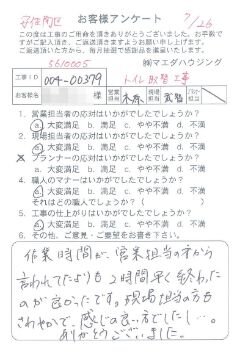 守住関区 お客様アンケート 7/26
この度は工事のご用命を頂きありがとうございました。お手数で
すがご記入頂き、ご返送頂きますようお願い申し上げます。
ご返送方の方には、毎月抽選で感謝品を差し上げます。
5610005 ㈱マエダハウジング
工事ID 004-00379 トイレ取替工事
お客様名 様 営業担当 木本 現場担当 武智
1. 営業担当者の応対はいかがでしたでしょうか?
a. 大変満足 b. 満足 c. やや不満 d. 不満
2. 現場担当者の応対はいかがでしたでしょうか?
a. 大変満足 b. 満足 c. やや不満 d. 不満
3. プランナーの応対はいかがでしたでしょうか?
a. 大変満足 b. 満足 c. やや不満 d. 不満
4. 職人のマナーはいかがでしたでしょうか?
a. 大変満足 b. 満足 c. やや不満 d. 不満
それはどの職人でしょうか?( )
5. 工事の仕上がりはいかがでしたでしょうか?
a. 大変満足 b. 満足 c. やや不満 d. 不満
6. その他、ご意見・ご要望をお書き下さい。
作業時間が、営業担当の方から
言われてたよりも2時間早く終わった
のが良かったです。現場担当の方も
さわやかで、感じの良い方でしたし…。
ありがとうございました。